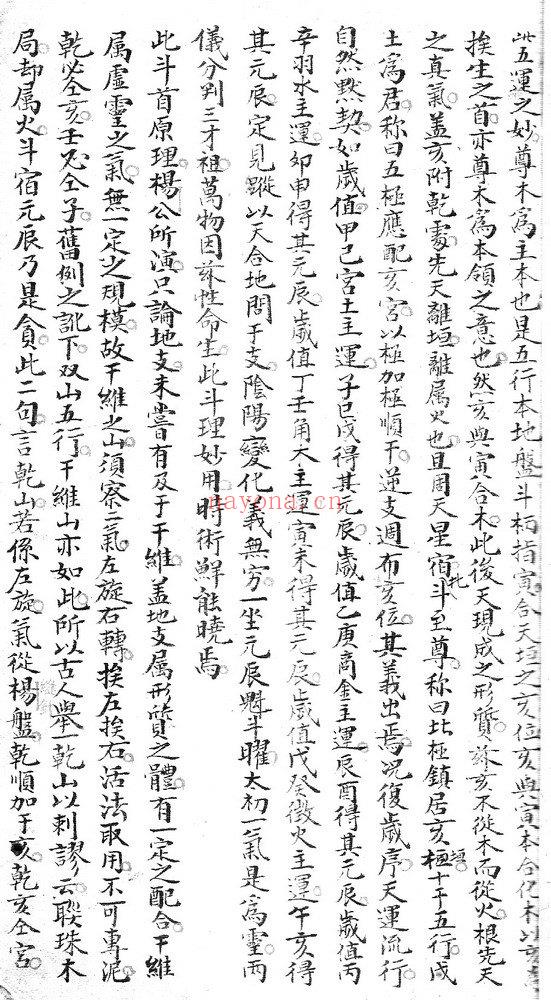 此五運之妙尊木為主木也是五行本地盤斗柄指寅合天垣之亥位亥與寅本合化木以亥為
挨生之首亦尊木為本領之意也然亥與寅合木此後天現成之形質茲亥不從木而從火根先天
之真氣蓋亥附乾處先天離垣離属火也且周天星宿北斗至尊称曰北極鎮居亥垣極十干五行戊
土為君称曰五極應配亥宮以極加極順干逆支週布亥位其義出焉况復歲序天運流行
自然默契如歲值甲己宮土主運子巳戌得其元辰歲值乙庚商金主運辰酉得其元辰歲值丙
辛羽水主運卯申得其元辰歲值丁壬角木主運寅未得其元辰歲值戊癸徵火主運午亥得
其元辰定見蹤以天合地問于支陰陽變化義無穷一坐元辰魁斗曜太初一氣是為靈兩
儀分判三才祖萬物因兹性命生此斗理妙用時術鮮能曉焉
此斗首原理楊公所演只論地支未嘗有及于干維蓋地支属形質之體有一定之配合干維
属虛靈之氣無一定之規模故干維之山須察二氣左旋右轉挨左挨右活法取用不可專泥
乾必仝亥壬必仝子舊例之訛下双山五行干維山亦如此所以古人舉一乾山以刺謬云聯珠木
局却属火斗宿元辰乃是貪此二句言乾山若係左旋氣從楊盤乾順加于亥乾亥仝宮
nayona.cn